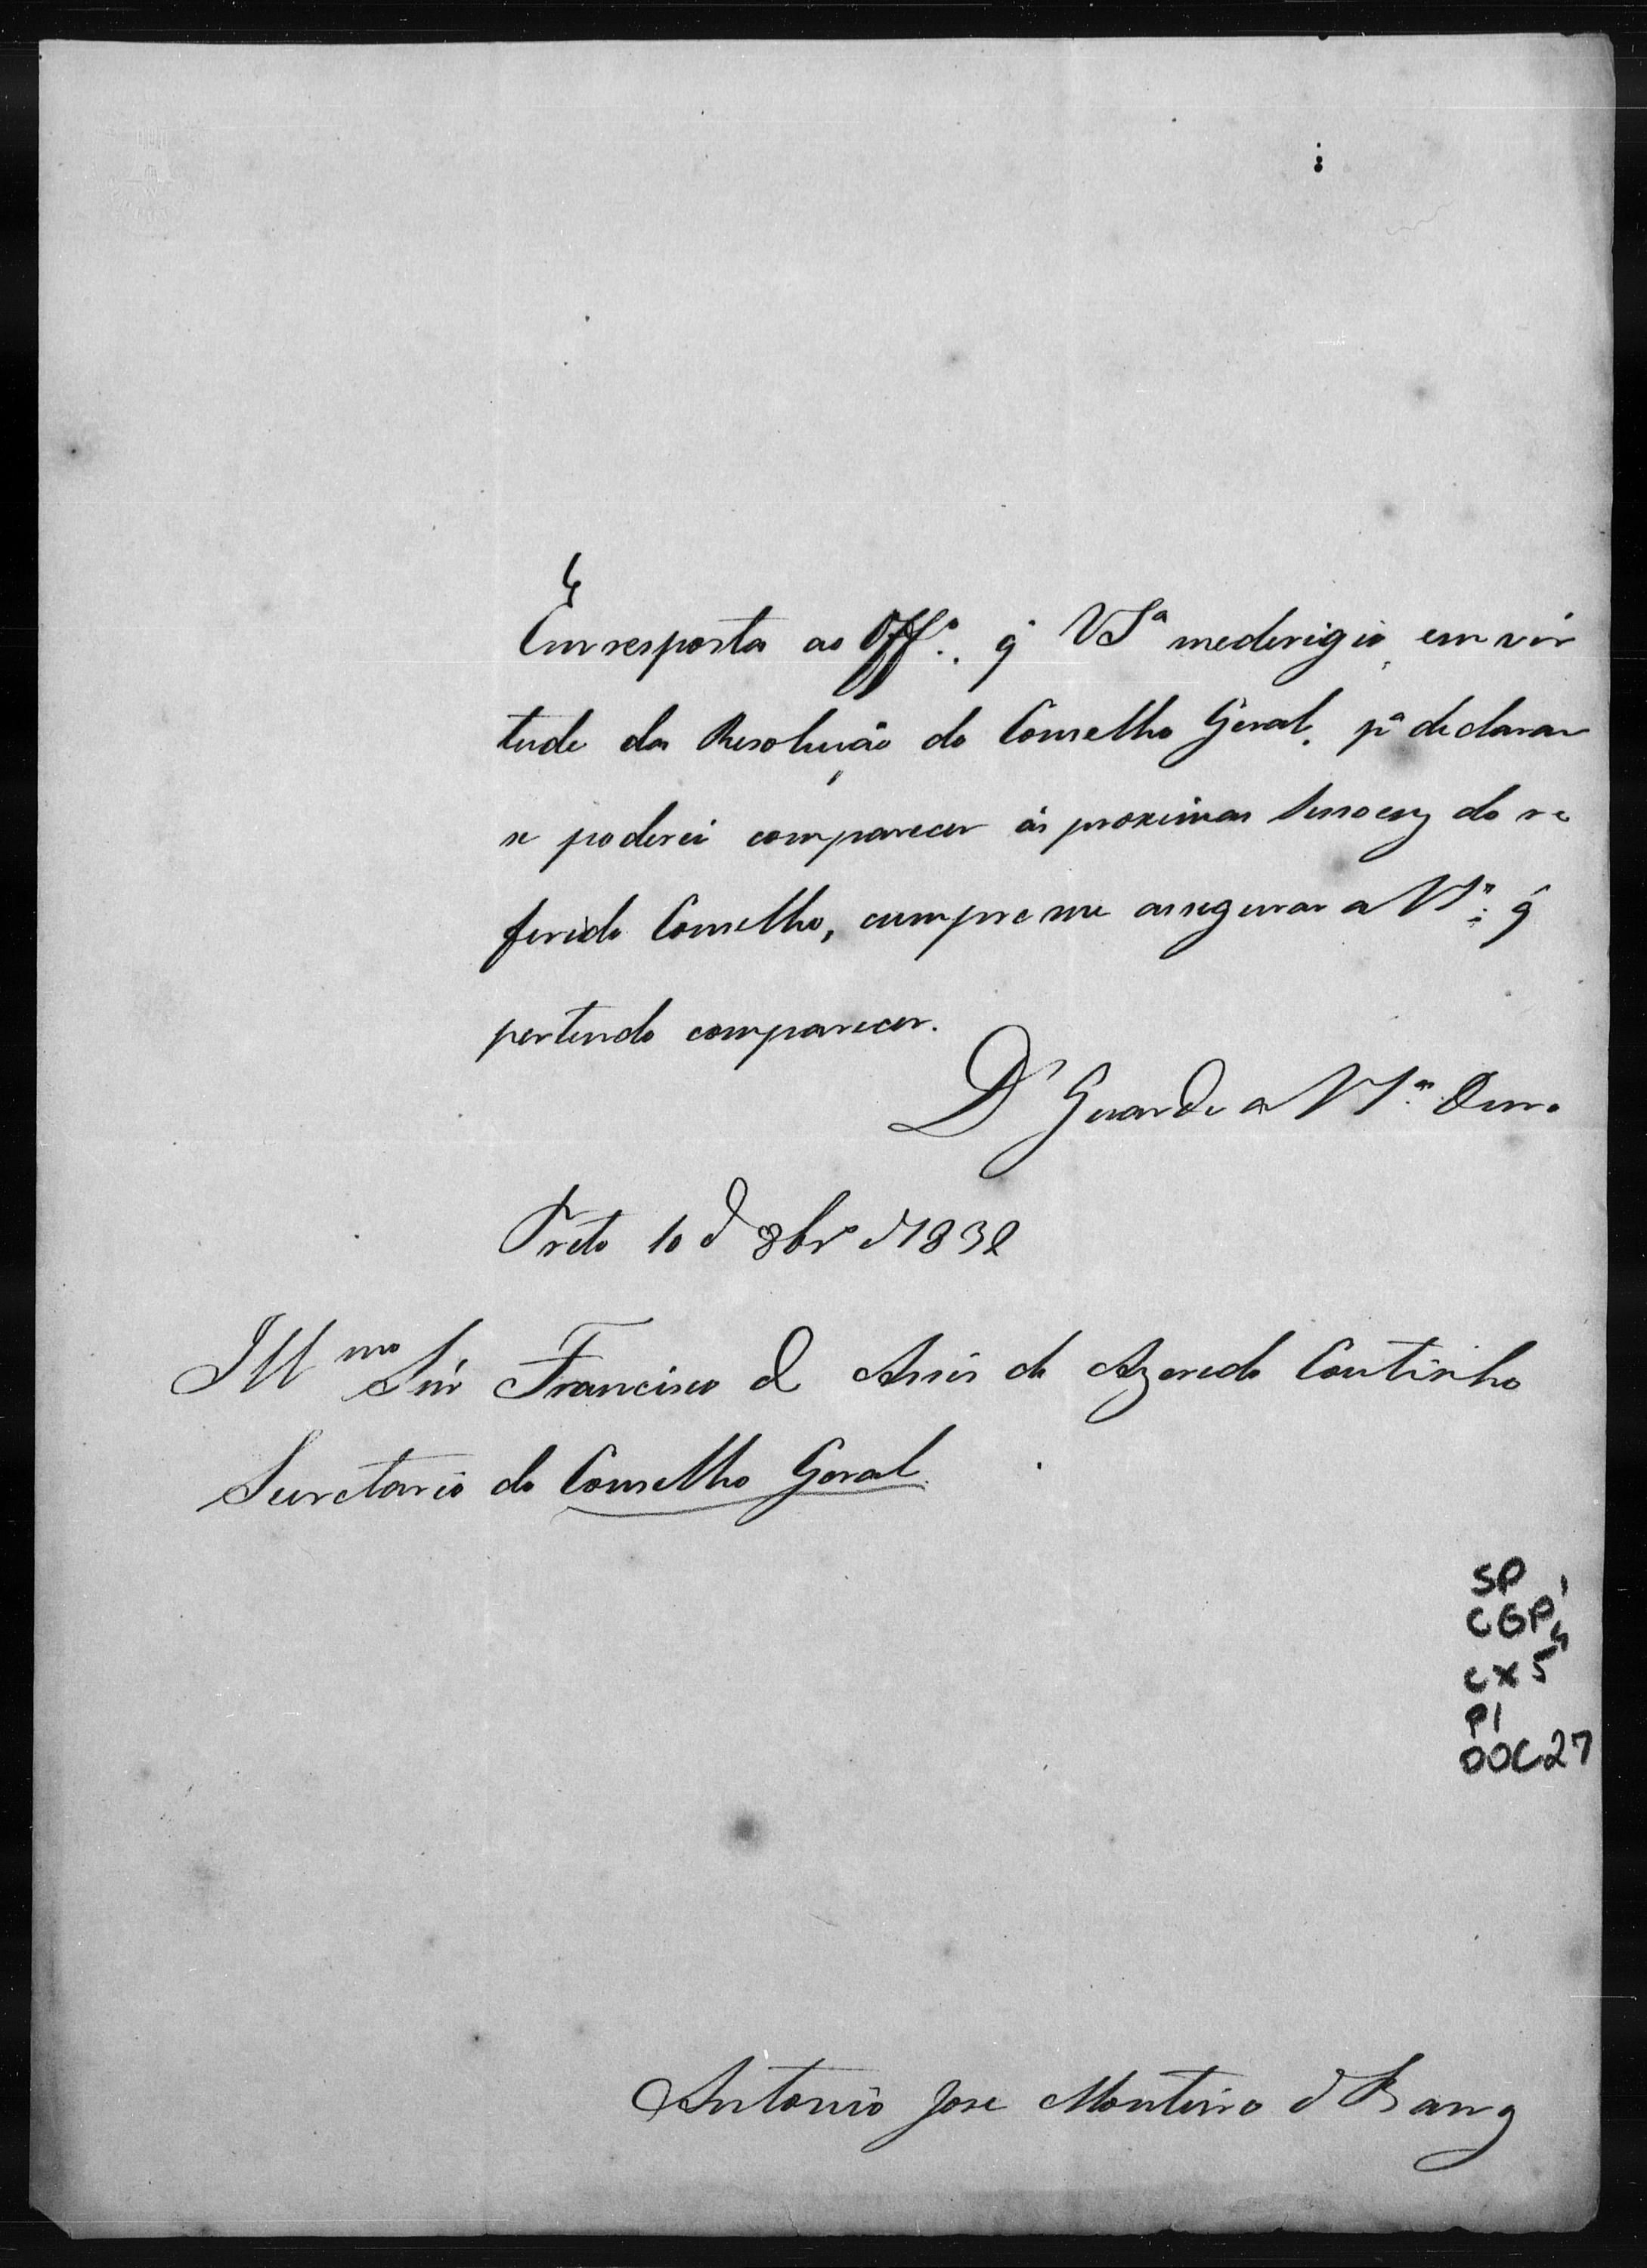 Em resposta ao Off.º q̃ VSª medirigio em vir
tude da Resolução do Conselho Geral, pª declarar
se poderei comparecer ás proximas Sessoes do re
ferido Conselho, cumpre me assegurar a VSª q̃
pertendo comparecer.
Dˢ Guarde a VSª Ouro
Preto 10 d 8brº d 1832
Illmo Snr Francisco d Assis de Azeredo Coutinho
Secretario do Conselho Geral.
SP
CGP1
CX5
P1
DOC27
Antonio Jose Monteiro d Barros